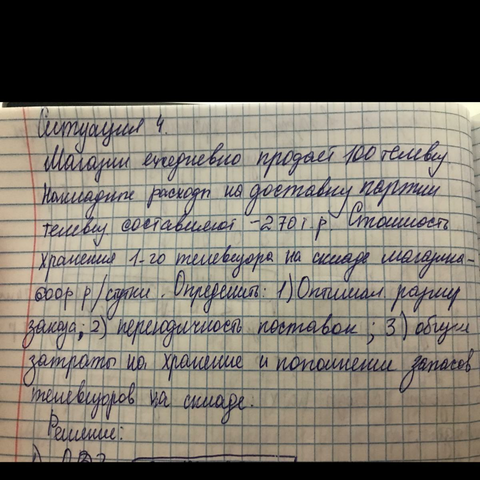 Ситуация 4.
Магазин ежедневно продает 100 телевиз.
Накладные расходы на доставку партии
телевиз составляют - 270 т.р. Стоимость
хранения 1-го телевизора на складе магазина -
600р р/сутки. Определить: 1) Оптимал. размер
заказа; 2) периодичность поставок; 3) общие
затраты на хранение и пополнение запасов
телевизоров на складе.
Решение:
1)